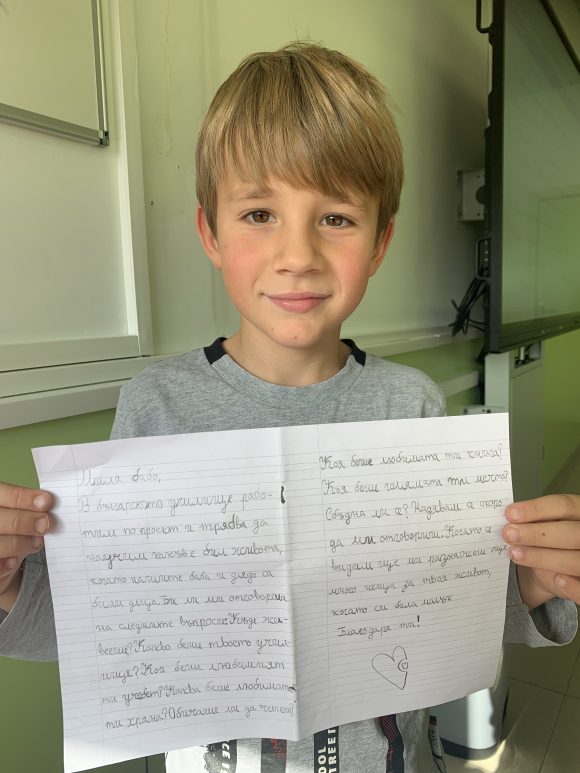 Мила баба,
В българското училище рабо-
тим по проект и трябва да
научим какъв е бил живота,
когато нашите баба и дядо са
били деца. Би ли ми отговорила
на следните въпроси: Къде жи-
вееше? Какво беше твоето учил-
ище? Коя беше любимият
ти учебт? Каква беше любимата
ти храна? Обичаше ли да четеш?
Коя беше любимата ти книга?
Коя беше голямата ти мечта?
Сбъдна ли се? Надявам се скоро
да ми отговориш. Когато се
видим ще ми разкажеш още
много неща за твоя живот,
когато си била малък
Благодаря ти!